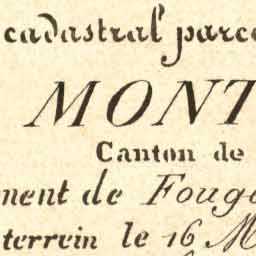 cadastral parce
MONT
Canton de
ment de Fouge
terrein le 16 M